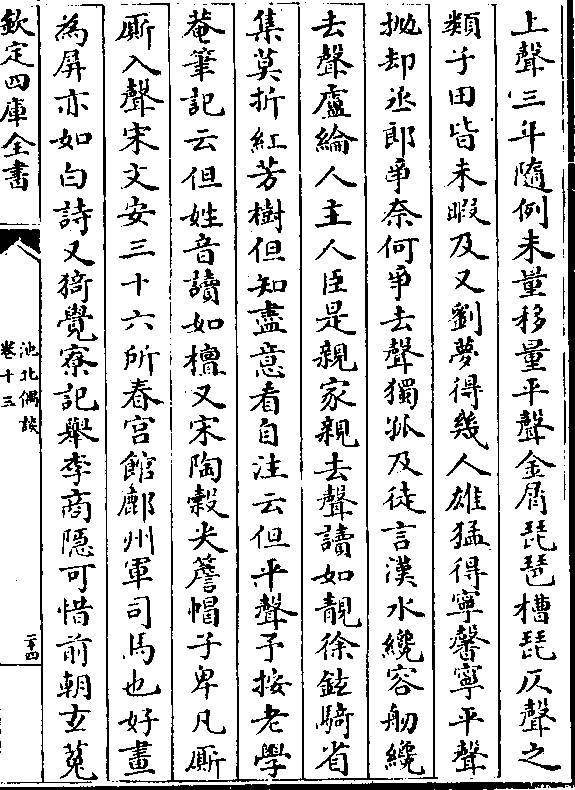 上聲三年隨例未量移量平聲金屑琵琶槽琵仄聲之
類子田皆未暇及又劉夢得幾人雄猛得寧馨寧平聲
拋却丞郎爭奈何爭去聲獨孤及徒言漢水纔容舠纔
去聲盧綸人主人臣是親家親去聲讀如靚徐鉉騎省
集莫折紅芳樹但知盡意看自注云但平聲予按老學
菴筆記云但姓音讀如檀又宋陶穀尖簷帽子卑凡厮
厮入聲宋文安三十六所春宫館鄜州軍司馬也好畫
為屏亦如白詩又猗覺寮記舉李商隱可惜前朝玄菟
欽定四庫全書
池北偶談
卷十三
二十四